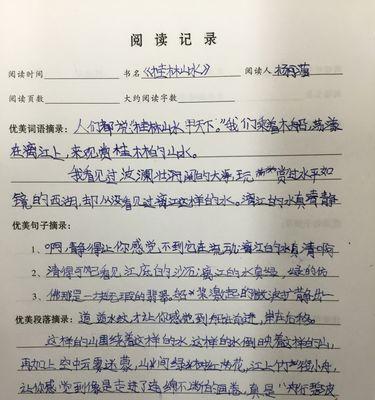 阅读记录
阅读时间 书名《桂林山水》 阅读人
阅读页数 大约阅读字数
优美词语摘录：人们都说"桂林山水甲天下。"我们乘着木船，荡漾
在漓江上，来观赏桂林的山水。
我看见过波澜壮阔的大海，玩 赏过水平如
镜的西湖，却从没看见过漓江这样的水。漓江的水真静
优美句子摘录：
1、啊，静得让你感觉不到它在流动漓江的水真清啊
2、清得可以看见江底的沙石漓江的水真绿，绿的仿
3、佛那是一块无瑕的翡翠，船桨激起的微波扩散出一
优美段落摘录：道道水纹，才让你感觉到船在前进，岸在后移。
这样的山围绕着这样的水，这样的水倒映着这样的山，
再加上空中云雾迷蒙，山间绿树红花，江上竹筏小舟，
让你感觉到像是走进了连绵不断的画卷，真是"舟行碧波